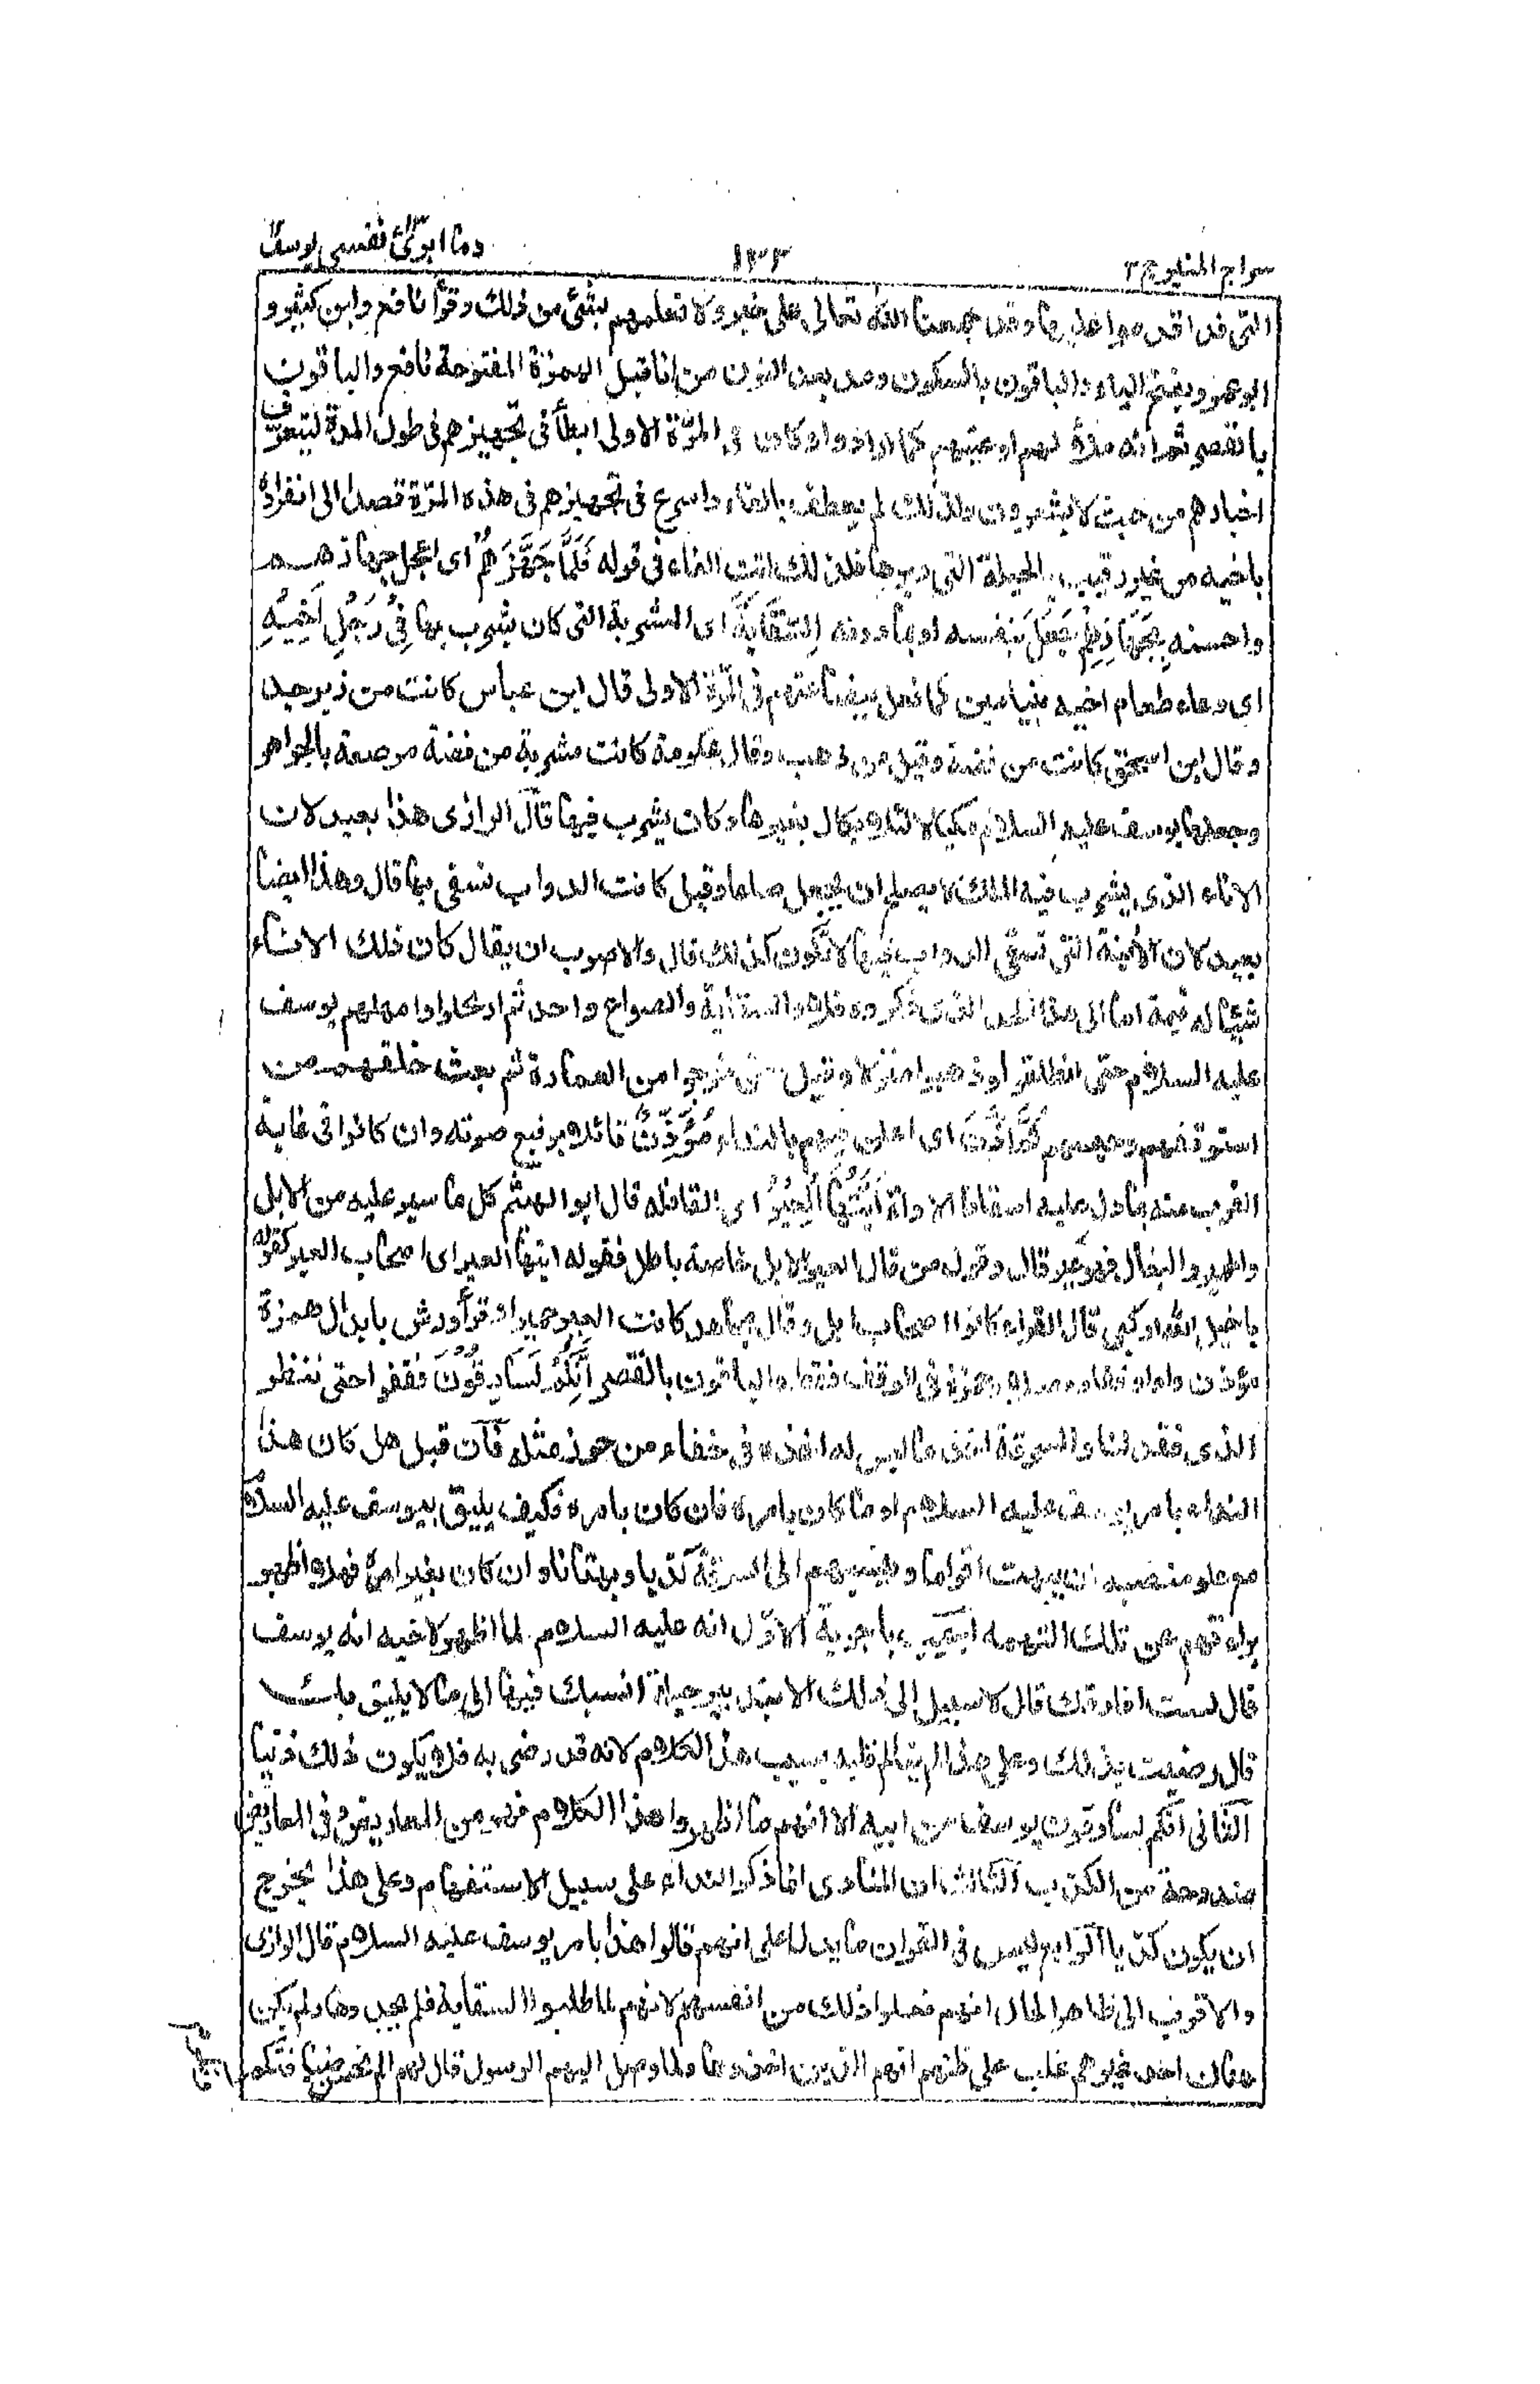 سراج المنير ج ٢
١٣٣
وما ابرئ نفسي يوسف
التى قد اقدموا عليها وقد جمعنا الله تعالى على خير ولا تعلمهم بشئ من ذلك وقرأ نافع وابن كثير و
ابو عمرو بفتح الياء والباقون بالسكون ومد بعد النون من انا قبل الهمزة المفتوحة نافع والباقون
بالقصر ثم انه ملأ لهم اوعيتهم كما ارادوا وكان فى المرّة الاولى ابطأ فى تجهيزهم فى طول المدة ليتعرّف
اخبارهم من حيث لا يشعرون ولذلك لم يعطف بالفاء واسرع فى تجهيزهم فى هذه المرّة قصدا الى انفراده
باخيه من غير رقيب بالحيلة التى دبرها فلذلك اتت الفاء فى قوله فَلَمَّا جَهَّزَهُمْ اى اعجل جهازهم
واحسنه بِجَهَازِهِمْ جَعَلَ بنفسه او بمأذونه السِّقَايَةَ اى المشربة التى كان يشرب بها فِىْ رَحْلِ اَخِيْهِ
اى وعاء طعام اخيه بنيامين كما فعل ببضاعتهم فى المرّة الاولى قال ابن عباس كانت من زبرجد
وقال ابن اسحق كانت من فضة وقيل من ذهب وقال عكرمة كانت مشربة من فضة مرصعة بالجواهر
وجعلها يوسف عليه السلام مكيالا لئلا يكال بغيرها وكان يشرب فيها قال الرازى هذا بعيد لان
الاناء الذى يشرب فيه الملك لا يصلح ان يجعل صاعا وقيل كانت الدواب تسقى بها قال وهذا ايضا
بعيد لان الآنية التى تسقى الدواب فيها لا تكون كذلك قال والاصوب ان يقال كان ذلك الاناء
شيئا له قيمة اما الى هذا الحد الذى ذكروه فلا والسقاية والصواع واحد ثم ارتحلوا وامهلهم يوسف
عليه السلام حتى انطلقوا وذهبوا منزلا وقيل حتى خرجوا من العمارة ثم بعث خلفهم من
استوقفهم وحبسهم ثُمَّ اَذَّنَ اى اعلن فيهم بالنداء مُؤَذِّنٌ قائلا برفيع صوته وان كانوا فى غاية
القرب منه بما دل عليه اسقاط الاداة اَيَّتُهَا الْعِيْرُ اى القافلة قال ابو الهيثم كل ما سير عليه من الابل
والحمير والبغال فهو عير قال وقول من قال العير الابل خاصة باطل فقوله ايتها العير اى اصحاب العير كقوله
يا خيل الله اركبى قال الفراء كانوا اصحاب ابل وقال مجاهد كانت العير حميرا وقرأ ورش بابدال همزة
مؤذن واوا وقفا ووصلا وحمزة فى الوقف فقط والباقون بالقصر اِنَّكُمْ لَسَارِقُوْنَ فقفوا حتى ننظر
الذى فقد لنا والسرقة اخذ ما ليس له اخذه فى خفاء من حرز مثله فان قيل هل كان هذا
النداء بامر يوسف عليه السلام او ما كان بامره فان كان بامره فكيف يليق بيوسف عليه السلام
مع علو منصبه ان يبهت اقواما وينسبهم الى السرقة كذبا وبهتانا وان كان بغير امره فهلا اظهر
براءتهم عن تلك التهمة اجيب باجوبة الاوّل انه عليه السلام لما اظهر لاخيه انه يوسف
قال لست افارقك قال لا سبيل الى ذلك الا بتدبير حيلة انسبك فيها الى ما لا يليق بك
قال رضيت بذلك وعلى هذا لم يتألم قلبه بسبب هذا الكلام لانه قد رضى به فلا يكون ذلك ذنبا
الثانى انكم لسارقون يوسف من ابيه الا انهم ما اظهروا هذا الكلام فهو من المعاريض وفى المعاريض
مندوحة عن الكذب الثالث ان المنادى انما ذكر النداء على سبيل الاستفهام وعلى هذا يخرج
ان يكون كذبا الرابع ليس فى القران ما يدل على انهم قالوا هذا بامر يوسف عليه السلام قال الرازى
والاقرب الى ظاهر الحال انهم فعلوا ذلك من انفسهم لانهم لما طلبوا السقاية فلم يجدوها ولم يكن
هناك احد غيرهم غلب على ظنهم انهم الذين اخذوها ولما وصل اليهم الرسول قال لهم الم نحسن ضيافتكم